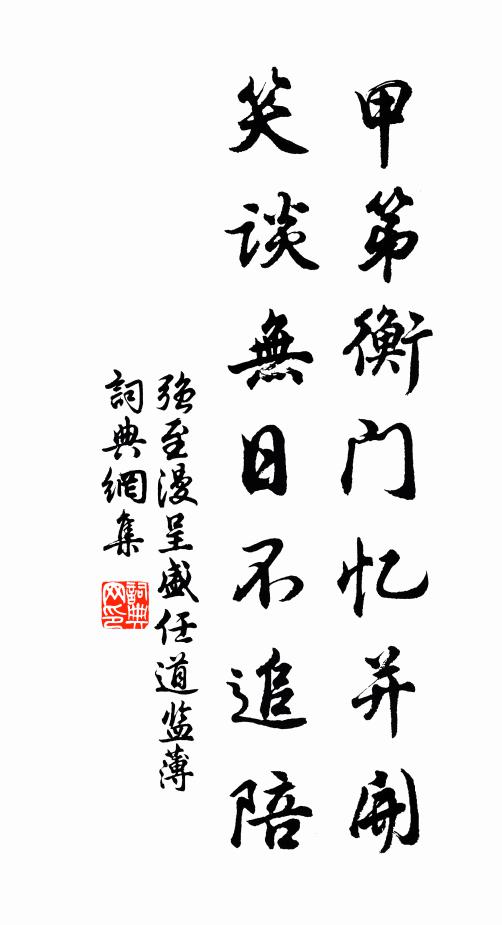 甲第衡门忆并開
笑谈無日不追陪
强至漫呈盛任道监薄
詞典網集
詞典网印